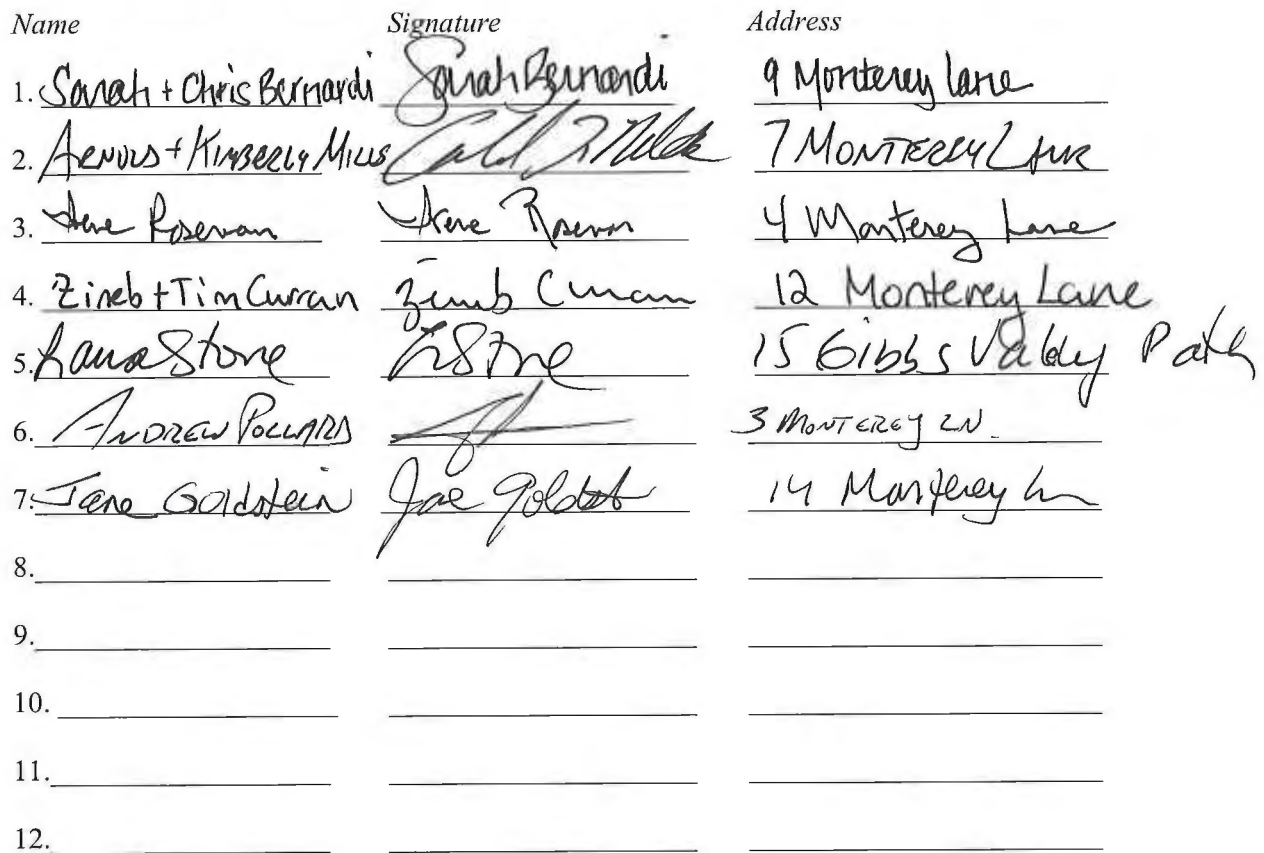 Name Signature Address
1. Sarah + Chris Bernardi Sarah Bernardi 9 Monterey Lane
2. + Kimberly Mills 7 Monterey Lane
3. 4 Monterey Lane
4. Zineb + Tim Curran Zineb Curran 12 Monterey Lane
5. Stone 15 Gibbs Valley Path
6. Andrew Pollard 3 Monterey Ln.
7. Jane Goldstein 14 Monterey Ln
8.
9.
10.
11.
12.